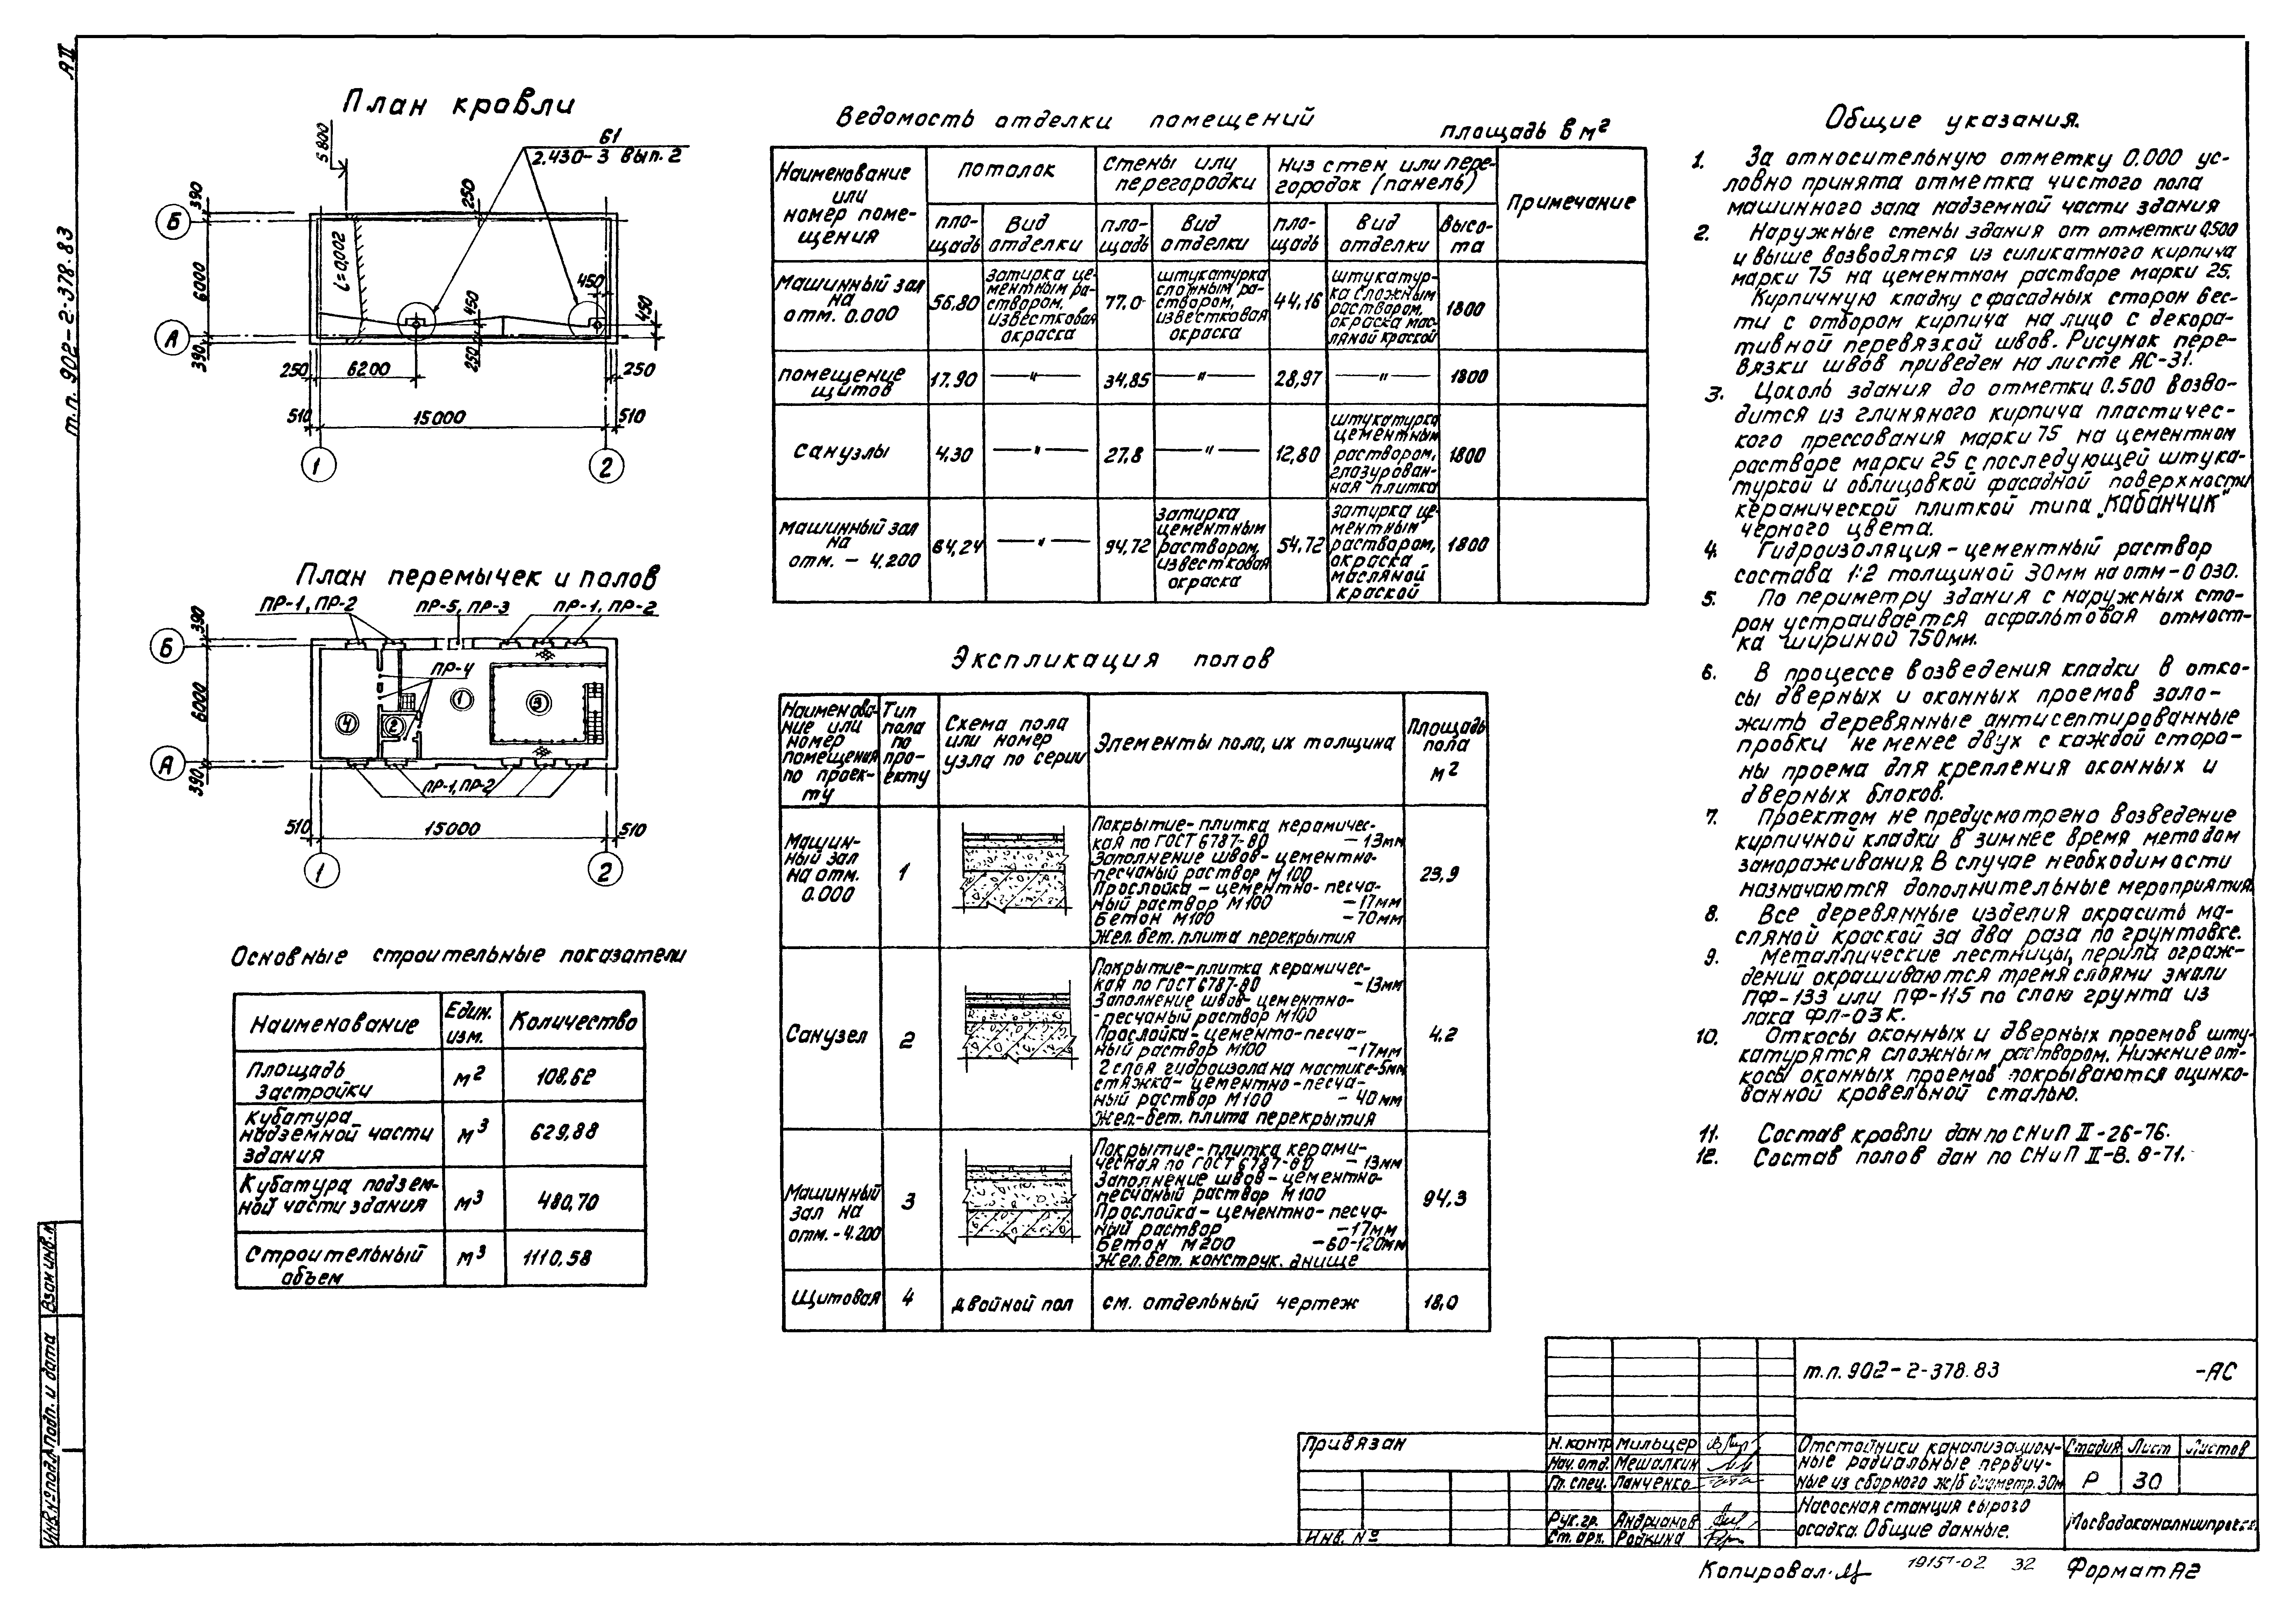 АII
т.п. 902-2-378.83
План кровли
5800
61
2.430-3 вып.2
390
250
Б
6000
i=0,002
450
450
450
А
390
250
250
6200
250
510
15000
510
1
2
План перемычек и полов
ПР-1, ПР-2
ПР-5, ПР-3
ПР-1, ПР-2
390
Б
ПР-4
6000
1
2
3
4
А
390
ПР-1, ПР-2
510
15000
510
1
2
Основные строительные показатели
Наименование
Един. изм.
Количество
Площадь застройки
м2
108,62
Кубатура надземной части здания
м3
629,88
Кубатура подзем-
ной части здания
м3
480,70
Строительный объем
м3
1110,58
Ведомость отделки помещений
площадь в м2
Наименование или номер поме-
щения
Потолок
Стены или перегородки
Низ стен или пере-
городок (панель)
Примечание
пло-
щадь
вид отделки
пло-
щадь
вид отделки
пло-
щадь
вид отделки
высо-
та
Машинный зал на отм. 0.000
56,80
затирка це-
ментным ра-
створом,
известковая
окраска
77.0
штукатурка
сложным ра-
створом,
известковая
окраска
44,16
штукатур-
ка сложным
раствором,
окраска мас-
ляной краской
1800
помещение щитов
17.90
— " —
34,85
— " —
28,97
— " —
1800
санузлы
4.30
— " —
27.8
— " —
12,80
штукатурка
цементным
раствором,
глазурован-
ная плитка
1800
машинный зал на отм. - 4.200
64,24
— " —
94,72
затирка
цементным
раствором,
известковая
окраска
54,72
затирка це-
ментным
раствором,
окраска
масляной
краской
1800
Экспликация полов
Наименова-
ние или
номер
помещения
по проек-
ту
Тип
пола
по
про-
екту
Схема пола
или номер
узла по серии
Элементы пола, их толщина
Площадь
пола
м2
Машин-
ный зал
на отм.
0.000
1
Покрытие-плитка керамичес-
кая по ГОСТ 6787-80 -13мм
Заполнение швов-цементно-
-песчаный раствор М100
Прослойка-цементно-песча-
ный раствор М100 -17мм
Бетон М100 -70мм
Жел.бет. плита перекрытия
23,9
Санузел
2
Покрытие-плитка керамичес-
кая по ГОСТ 6787-80 -13мм
Заполнение швов-цементно-
-песчаный раствор М100
Прослойка-цементо-песча-
ный раствор М100 -17мм
2 слоя гидроизола на мастике-5мм
стяжка-цементно-песча-
ный раствор М100 -40мм
Жел-бет. плита перекрытия
4,2
Машинный
зал на
отм. -4.200
3
Покрытие-плитка керами-
ческая по ГОСТ 6787-80 -13мм
Заполнение швов-цементно-
песчаный раствор М100
Прослойка-цементно-песча-
ный раствор -17мм
Бетон М200 -60-120мм
Жел.бет. конструк. днище
94,3
Щитовая
4
двойной пол
см. отдельный чертеж
18,0
Общие указания.
1. За относительную отметку 0.000 ус-
ловно принята отметка чистого пола
машинного зала надземной части здания
2. Наружные стены здания от отметки 0.500
и выше возводятся из силикатного кирпича
марки 75 на цементном растворе марки 25.
Кирпичную кладку с фасадных сторон вес-
ти с отбором кирпича на лицо с декора-
тивной перевязкой швов. Рисунок пере-
вязки швов приведен на листе АС-31.
3. Цоколь здания до отметки 0.500 возво-
дится из глиняного кирпича пластичес-
кого прессования марки 75 на цементном
растворе марки 25 с последующей штука-
туркой и облицовкой фасадной поверхности
керамической плиткой типа „Кабанчик"
черного цвета.
4. Гидроизоляция-цементный раствор
состава 1:2 толщиной 30мм на отм-0.030.
5. По периметру здания с наружных сто-
рон устраивается асфальтовая отмост-
ка шириной 750мм.
6. В процессе возведения кладки в отко-
сы дверных и оконных проемов зало-
жить деревянные антисептированные
пробки не менее двух с каждой сторо-
ны проема для крепления оконных и
дверных блоков.
7. Проектом не предусмотрено возведение
кирпичной кладки в зимнее время методом
замораживания. В случае необходимости
назначаются дополнительные мероприятия.
8. Все деревянные изделия окрасить ма-
сляной краской за два раза по грунтовке.
9. Металлические лестницы, перила ограж-
дений окрашиваются тремя слоями эмали
ПФ-133 или ПФ-115 по слою грунта из
лака ФЛ-03К.
10. Откосы оконных и дверных проемов шту-
катурятся сложным раствором. Нижние от-
косы оконных проемов покрываются оцинко-
ванной кровельной сталью.
11. Состав кровли дан по СНиП II-26-76.
12. Состав полов дан по СНиП II-В. 8-71.
т.п. 902-2-378.83 -АС
Привязан
Инв. №
Н.контр Мильцер
Нач. отд. Мешалкин
Гл. спец. Панченко
Рук. гр. Андрианов
Ст. арх. Родкина
Отстойники канализацион-
ные радиальные первич-
ные из сборного ж/б диаметр. 30м
Стадия Лист Листов
Р 30
Насосная станция сырого
осадка. Общие данные.
Мосводоканалниипроект
Взам инв. №
Подп. и дата
Инв. № подл.
Копировал
19157-02 32
Формат А2